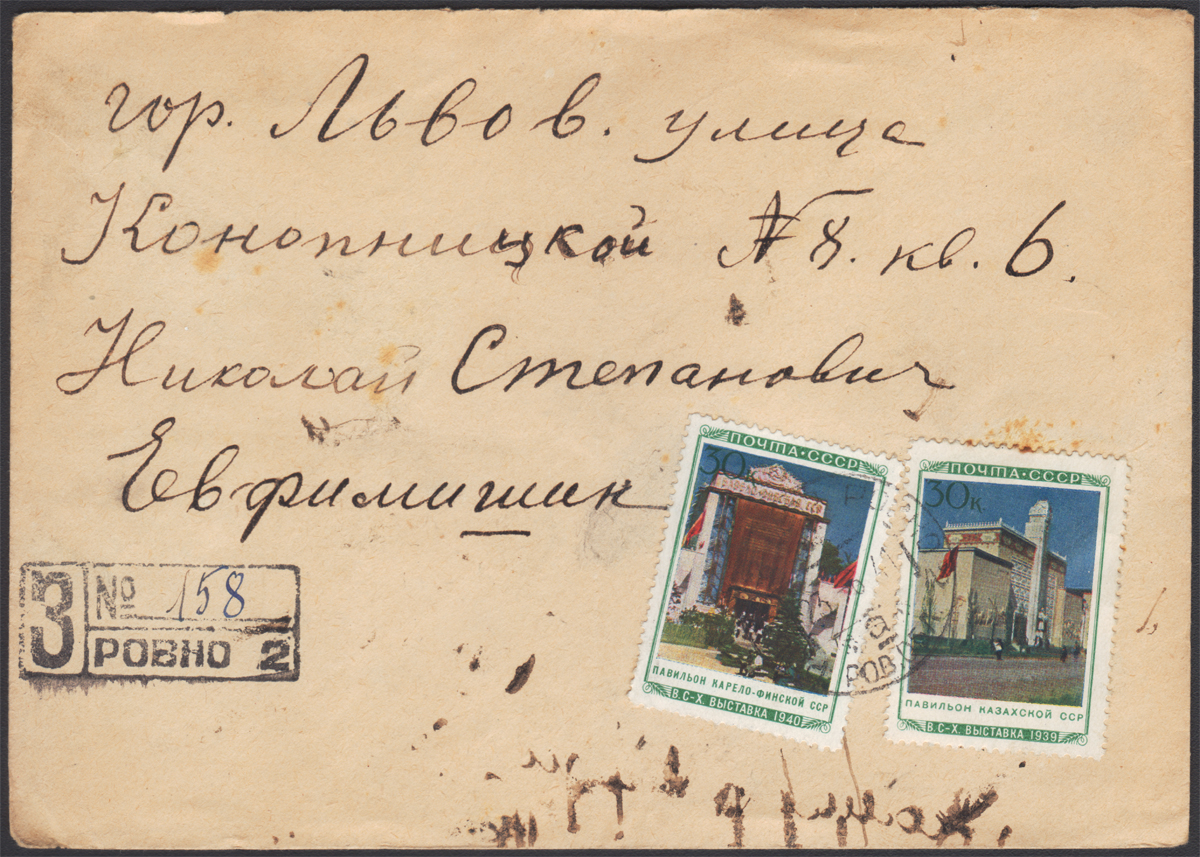 гор. Львов. улица
Конопницкой № 8. кв. 6.
Николай Степанович
Евфимишин
З № 158
РОВНО 2
ПОЧТА·СССР
30к
ПАВИЛЬОН КАРЕЛО-ФИНСКОЙ ССР
В.С-Х. ВЫСТАВКА 1940
ПОЧТА·СССР
30к
ПАВИЛЬОН КАЗАХСКОЙ ССР
В.С-Х. ВЫСТАВКА 1939